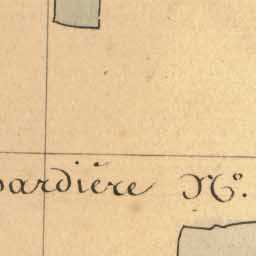 bardière N°.